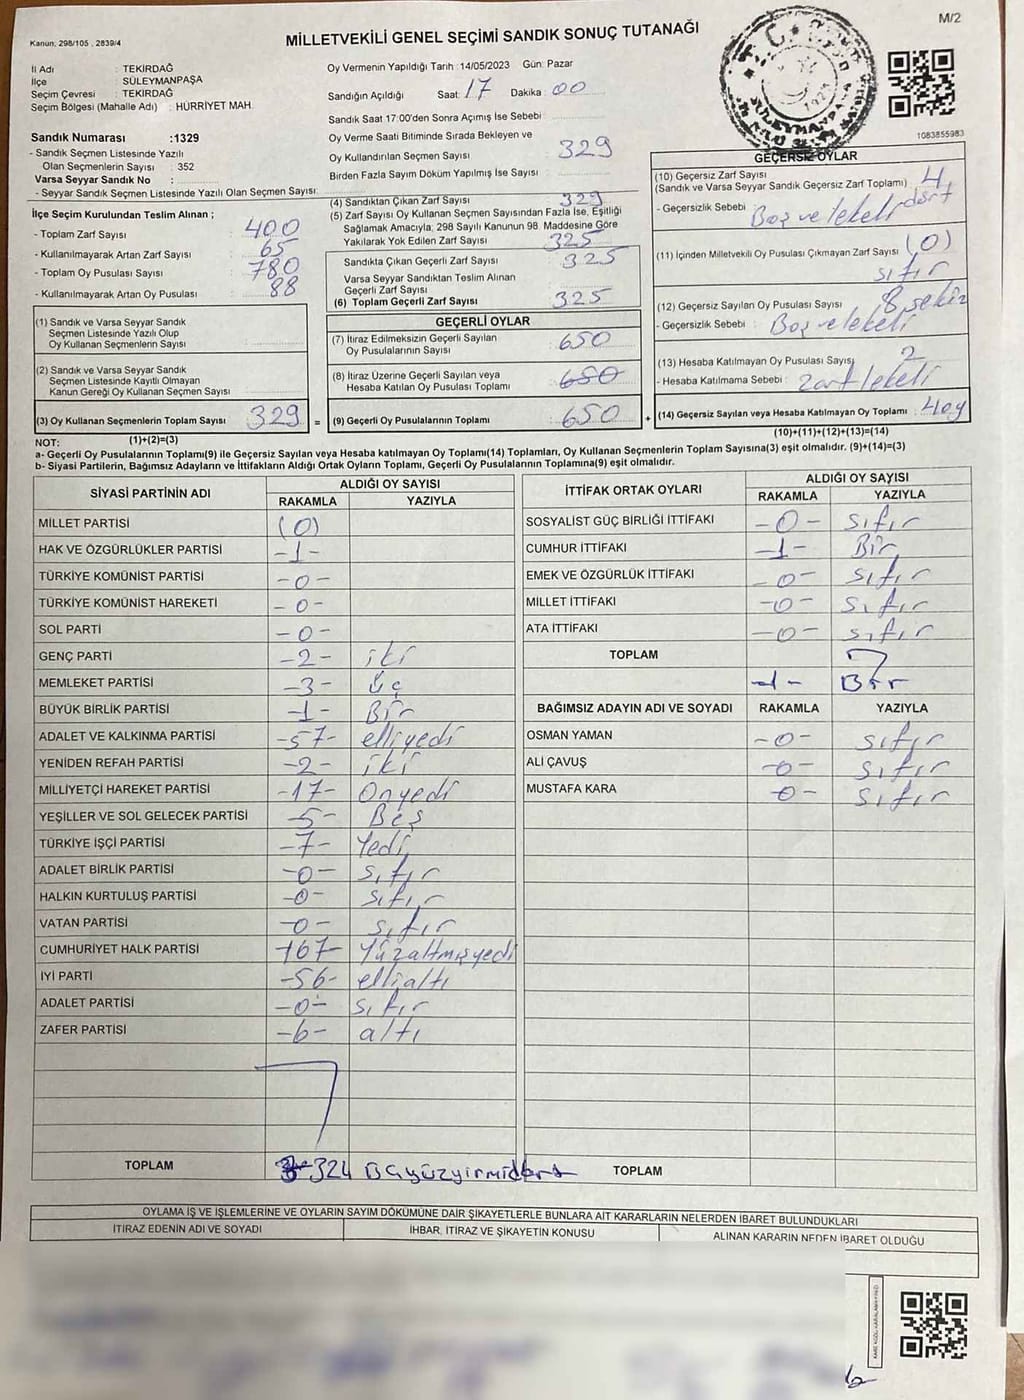 M/2
Kanun; 298/105 , 2839/4
MİLLETVEKİLİ GENEL SEÇİMİ SANDIK SONUÇ TUTANAĞI
İl Adı : TEKİRDAĞ
İlçe : SÜLEYMANPAŞA
Seçim Çevresi : TEKİRDAĞ
Seçim Bölgesi (Mahalle Adı) : HÜRRİYET MAH.
Sandık Numarası :1329
- Sandık Seçmen Listesinde Yazılı
Olan Seçmenlerin Sayısı : 352
Varsa Seyyar Sandık No :
- Seyyar Sandık Seçmen Listesinde Yazılı Olan Seçmen Sayısı:
İlçe Seçim Kurulundan Teslim Alınan ;
- Toplam Zarf Sayısı : 400
- Kullanılmayarak Artan Zarf Sayısı : 65
- Toplam Oy Pusulası Sayısı : 780
- Kullanılmayarak Artan Oy Pusulası : 88
(1) Sandık ve Varsa Seyyar Sandık
Seçmen Listesinde Yazılı Olup
Oy Kullanan Seçmenlerin Sayısı
(2) Sandık ve Varsa Seyyar Sandık
Seçmen Listesinde Kayıtlı Olmayan
Kanun Gereği Oy Kullanan Seçmen Sayısı
(3) Oy Kullanan Seçmenlerin Toplam Sayısı 329 =
(1)+(2)=(3)
Oy Vermenin Yapıldığı Tarih :14/05/2023 Gün: Pazar
Sandığın Açıldığı Saat: 17 Dakika : 00
Sandık Saat 17:00'den Sonra Açımış İse Sebebi
Oy Verme Saati Bitiminde Sırada Bekleyen ve
Oy Kullandırılan Seçmen Sayısı 329
Birden Fazla Sayım Döküm Yapılmış İse Sayısı :
(4) Sandıktan Çıkan Zarf Sayısı 329
(5) Zarf Sayısı Oy Kullanan Seçmen Sayısından Fazla İse, Eşitliği
Sağlamak Amacıyla; 298 Sayılı Kanunun 98. Maddesine Göre
Yakılarak Yok Edilen Zarf Sayısı 325
Sandıkta Çıkan Geçerli Zarf Sayısı : 325
Varsa Seyyar Sandıktan Teslim Alınan
Geçerli Zarf Sayısı :
(6) Toplam Geçerli Zarf Sayısı : 325
GEÇERLİ OYLAR
(7) İtiraz Edilmeksizin Geçerli Sayılan
Oy Pusulalarının Sayısı : 650
(8) İtiraz Üzerine Geçerli Sayılan veya
Hesaba Katılan Oy Pusulası Toplamı : 650
(9) Geçerli Oy Pusulalarının Toplamı : 650 +
1083855983
GEÇERSİZ OYLAR
(10) Geçersiz Zarf Sayısı
(Sandık ve Varsa Seyyar Sandık Geçersiz Zarf Toplamı) : 4 dört
- Geçersizlik Sebebi : Boş ve lekeli
(11) İçinden Milletvekili Oy Pusulası Çıkmayan Zarf Sayısı : (0)
sıfır
(12) Geçersiz Sayılan Oy Pusulası Sayısı : 8 sekiz
- Geçersizlik Sebebi : Boş ve lekeli
(13) Hesaba Katılmayan Oy Pusulası Sayısı 2
- Hesaba Katılmama Sebebi : zarf lekeli
(14) Geçersiz Sayılan veya Hesaba Katılmayan Oy Toplamı : 4 oy
(10)+(11)+(12)+(13)=(14)
NOT:
a- Geçerli Oy Pusulalarının Toplamı(9) ile Geçersiz Sayılan veya Hesaba Katılmayan Oy Toplamı(14) Toplamları, Oy Kullanan Seçmenlerin Toplam Sayısına(3) eşit olmalıdır. (9)+(14)=(3)
b- Siyasi Partilerin, Bağımsız Adayların ve İttifakların Aldığı Ortak Oyların Toplamı, Geçerli Oy Pusulalarının Toplamına(9) eşit olmalıdır.
SİYASİ PARTİNİN ADI ALDIĞI OY SAYISI
RAKAMLA YAZIYLA
MİLLET PARTİSİ (0)
HAK VE ÖZGÜRLÜKLER PARTİSİ -1-
TÜRKİYE KOMÜNİST PARTİSİ -0-
TÜRKİYE KOMÜNİST HAREKETİ -0-
SOL PARTİ -0-
GENÇ PARTİ -2- iki
MEMLEKET PARTİSİ -3- üç
BÜYÜK BİRLİK PARTİSİ -1- Bir
ADALET VE KALKINMA PARTİSİ -57- elliyedi
YENİDEN REFAH PARTİSİ -2- iki
MİLLİYETÇİ HAREKET PARTİSİ -17- Onyedi
YEŞİLLER VE SOL GELECEK PARTİSİ -5- Beş
TÜRKİYE İŞÇİ PARTİSİ -7- Yedi
ADALET BİRLİK PARTİSİ -0- sıfır
HALKIN KURTULUŞ PARTİSİ -0- sıfır
VATAN PARTİSİ -0- sıfır
CUMHURİYET HALK PARTİSİ -167- Yüzaltmışyedi
İYİ PARTİ -56- ellialtı
ADALET PARTİSİ -0- sıfır
ZAFER PARTİSİ -6- altı
TOPLAM 324 üçyüzyirmidört
İTTİFAK ORTAK OYLARI ALDIĞI OY SAYISI
RAKAMLA YAZIYLA
SOSYALİST GÜÇ BİRLİĞİ İTTİFAKI -0- sıfır
CUMHUR İTTİFAKI -1- Bir
EMEK VE ÖZGÜRLÜK İTTİFAKI -0- sıfır
MİLLET İTTİFAKI -0- sıfır
ATA İTTİFAKI -0- sıfır
TOPLAM
-1- Bir
BAĞIMSIZ ADAYIN ADI VE SOYADI RAKAMLA YAZIYLA
OSMAN YAMAN -0- sıfır
ALİ ÇAVUŞ -0- sıfır
MUSTAFA KARA -0- sıfır
TOPLAM
OYLAMA İŞ VE İŞLEMLERİNE VE OYLARIN SAYIM DÖKÜMÜNE DAİR ŞİKAYETLERLE BUNLARA AİT KARARLARIN NELERDEN İBARET BULUNDUKLARI
İTİRAZ EDENİN ADI VE SOYADI İHBAR, İTİRAZ VE ŞİKAYETİN KONUSU ALINAN KARARIN NEDEN İBARET OLDUĞU